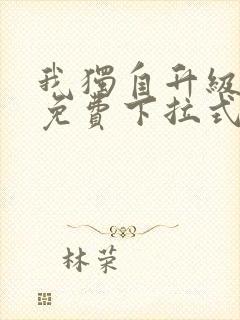 我獨自升級
免費下拉式
林荣